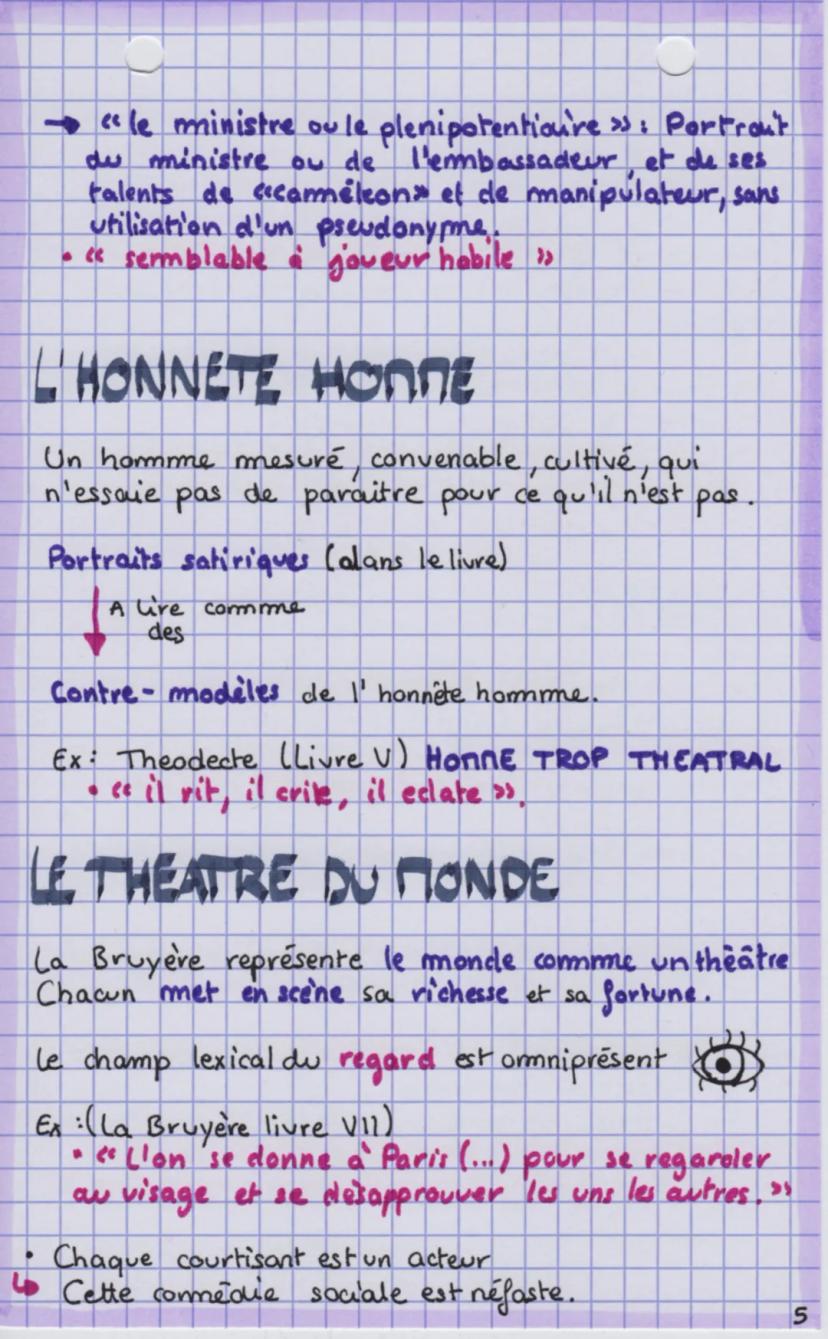 → « le ministre ou le plenipotentiaire » : Portrait
du ministre ou de l'embassadeur, et de ses
talents de «caméleon» et de manipulateur, sans
utilisation d'un pseudonyme.
• « semblable à joueur habile »
L'HONNÊTE HOMME
Un homme mesuré, convenable, cultivé, qui
n'essaie pas de paraitre pour ce qu'il n'est pas.
Portraits satiriques (dans le livre)
↓ A lire comme
des
Contre-modèles de l'honnête homme.
Ex : Theodecte (Livre V) HOMME TROP THEATRAL
• « il rit, il crie, il eclate ».
LE THEATRE DU MONDE
La Bruyère représente le monde comme un théâtre
Chacun met en scène sa richesse et sa fortune.
Le champ lexical du regard est omniprésent
Ex :(La Bruyère livre VII)
• « L'on se donne à Paris (...) pour se regarder
au visage et se désapprouver les uns les autres. »
• Chaque courtisant est un acteur
↳ Cette comédie sociale est néfaste.
5